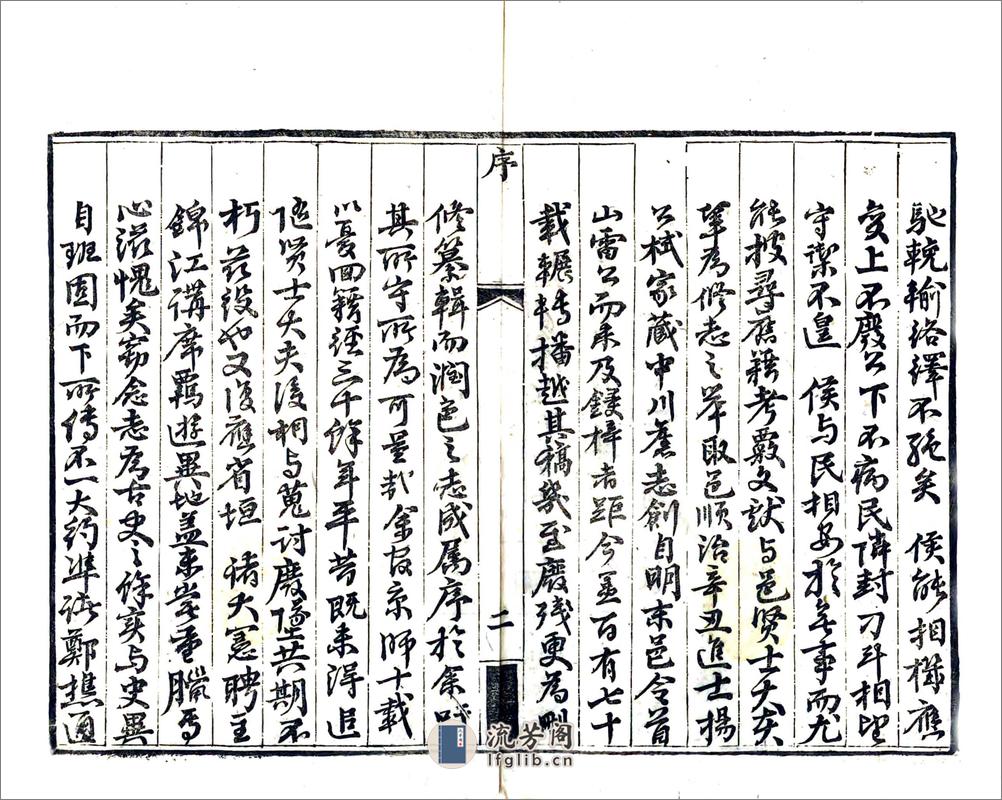 馳輓輸絡繹不絕矣　侯能相機應
变上不廢公下不病民隣封刁斗相望
守禦不遑　侯与民相安於無事而尤
能披尋舊籍考覈文献与邑贤士大夫
举為修志之举取邑順治辛丑進士楊
公栻家藏中川舊志創自明末邑令首
山雷公而未及鋟梓者距今盖百有七十
載輾轉播越其稿幾至廢残更為刪
序
二
修纂輯而潤色之志成属序於余吁
其所守所為可量哉余官京师十載
以憂回籍經三十餘年平昔既未得追
随贤士大夫後相与蒐討廢墜共期不
朽茲役也又復應省垣　諸大憲聘主
錦江講席羈遊異地盖未嘗重臘焉
心滋愧矣窃念志為古史之餘实与史異
自班固而下所傳不一大約準諸鄭樵通
流芳阁
lfglib.cn